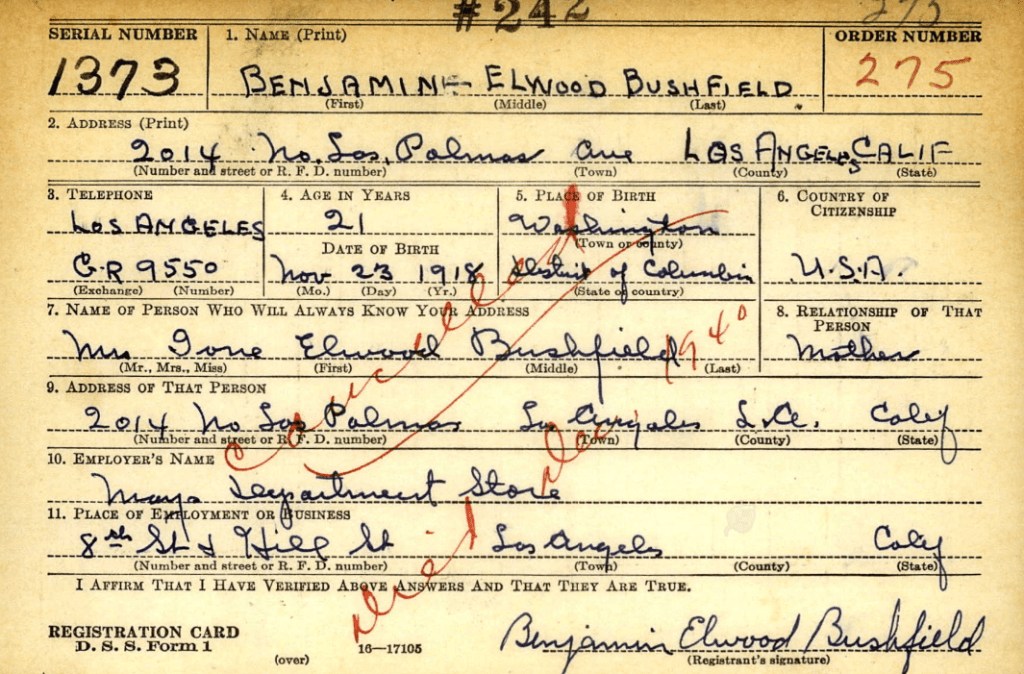 #242
275
SERIAL NUMBER
1. NAME (Print)
ORDER NUMBER
1373
BENJAMIN ELWOOD BUSHFIELD
275
(First) (Middle) (Last)
2. ADDRESS (Print)
2014 No. Los. Palmas Ave LOS ANGELES CALIF
(Number and street or R. F. D. number) (Town) (County) (State)
3. TELEPHONE
4. AGE IN YEARS
5. PLACE OF BIRTH
6. COUNTRY OF
CITIZENSHIP
LOS ANGELES
21
Washington
DATE OF BIRTH
(Town or county)
GR 9550
Nov 23 1918
District of Columbia
U.S.A.
(Exchange) (Number)
(Mo.) (Day) (Yr.)
(State or country)
7. NAME OF PERSON WHO WILL ALWAYS KNOW YOUR ADDRESS
8. RELATIONSHIP OF THAT
PERSON
Mrs Ione Elwood Bushfield
Mother
(Mr., Mrs., Miss) (First) (Middle) (Last)
9. ADDRESS OF THAT PERSON
2014 No Los Palmas Los Angeles L.A. Calif
(Number and street or R. F. D. number) (Town) (County) (State)
10. EMPLOYER'S NAME
Mays Department Store
11. PLACE OF EMPLOYMENT OR BUSINESS
8th St & Hill St Los Angeles Calif
(Number and street or R. F. D. number) (Town) (County) (State)
I AFFIRM THAT I HAVE VERIFIED ABOVE ANSWERS AND THAT THEY ARE TRUE.
Cancelled
Died Dec 1940
REGISTRATION CARD
D. S. S. Form 1
(over)
16—17105
Benjamin Elwood Bushfield
(Registrant's signature)